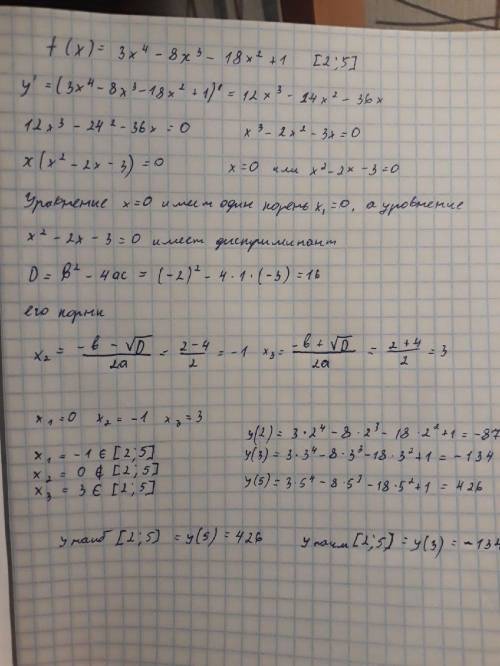 f(x) = 3x⁴ - 8x³ - 18x² + 1 [2;5]
y' = (3x⁴ - 8x³ - 18x² + 1)' = 12x³ - 24x² - 36x
12x³ - 24² - 36x = 0 x³ - 2x² - 3x = 0
x(x² - 2x - 3) = 0 x = 0 или x² - 2x - 3 = 0
Уравнение x = 0 имеет один корень x₁ = 0, а уровнение
x² - 2x - 3 = 0 имеет дискриминант
D = b² - 4ac = (-2)² - 4·1·(-3) = 16
его корни
x₂ = (-b - √D)/2a = (2-4)/2 = -1 x₃ = (-b + √D)/2a = (2+4)/2 = 3
x₁ = 0 x₂ = -1 x₃ = 3
x₁ = -1 ∈ [2;5]
x₂ = 0 ∉ [2;5]
x₃ = 3 ∈ [2;5]
y(2) = 3·2⁴ - 8·2³ - 18·2² + 1 = -87
y(3) = 3·3⁴ - 8·3³ - 18·3² + 1 = -134
y(5) = 3·5⁴ - 8·5³ - 18·5² + 1 = 426
y наиб [2;5] = y(5) = 426 y наим [2;5] = y(3) = -134